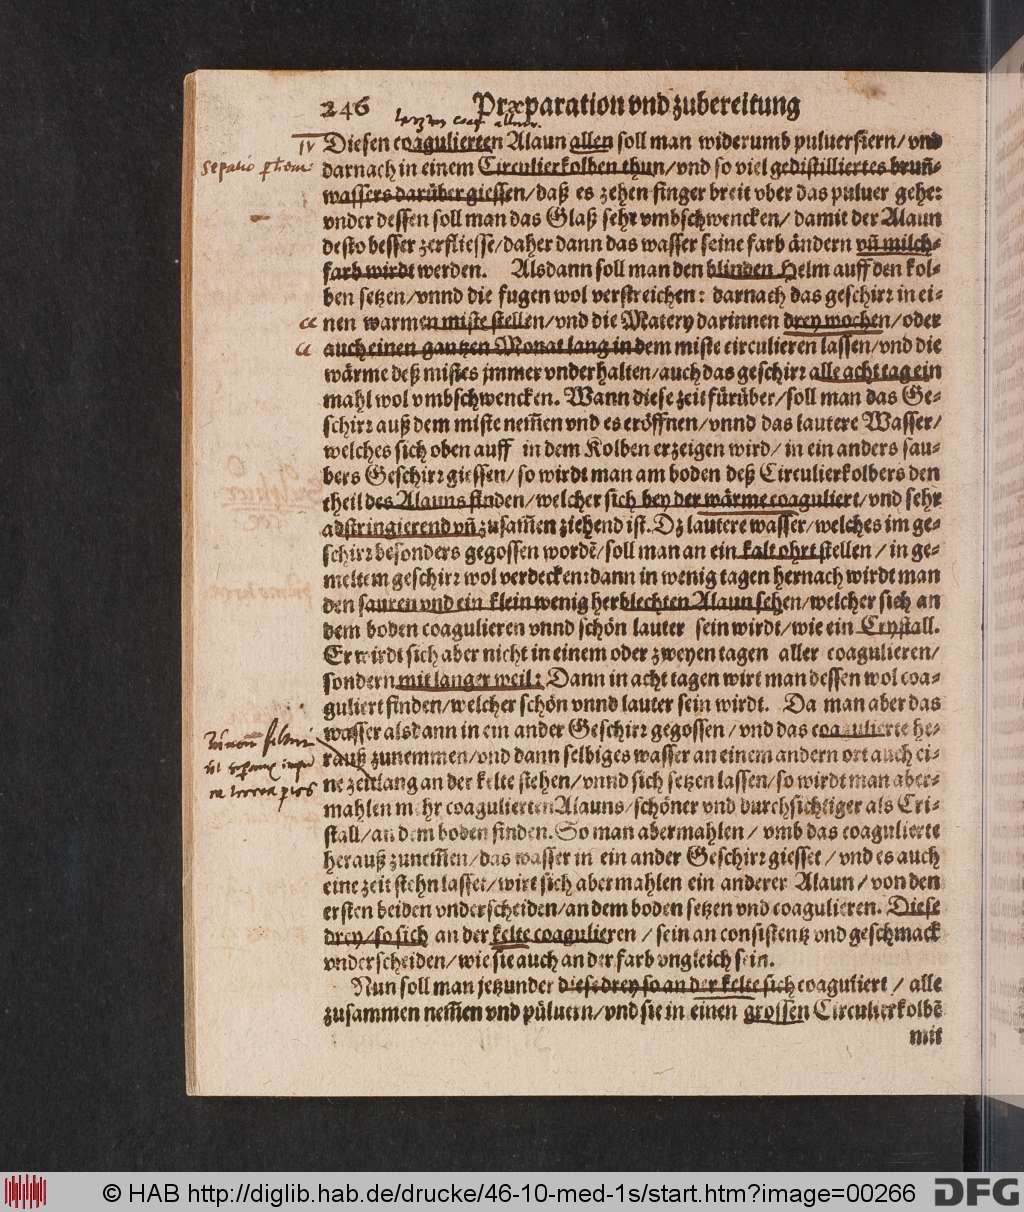 246 Præparation vnd zubereitung
IV Diesen coagulierten Alaun allen soll man widerumb puluerisiern/ vnd
darnach in einem Circulierkolben thun/ vnd so viel gedistilliertes bruñ-
wassers darüber giessen/ daß es zehen finger breit vber das puluer gehe:
vnder dessen soll man das Glaß sehr vmbschwencken/ damit der Alaun
desto besser zerfliessẽ/ daher dann das wasser seine farb ändern vñ milch-
farb wirdt werden. Alsdann soll man den blinden Helm auff den kol-
ben setzen/ vnnd die fugen wol verstreichen: darnach das geschirꝛ in ei-
nen warmen miste stellen/ vnd die Matery darinnen drey wochen/ oder
auch einen gantzen Monat lang in dem miste circulieren lassen/ vnd die
wärme deß mistes jmmer vnderhalten/ auch das geschirꝛ alle acht tag ein
mahl wol vmbschwencken. Wann diese zeit fürüber/ soll man das Ge-
schirꝛ auß dem miste nem̃en vnd es eröffnen/ vnnd das lautere Wasser/
welches sich oben auff in dem Kolben erzeigen wird/ in ein anders sau-
bers Geschirꝛ giessen/ so wirdt man am boden deß Circulierkolbers den
theil des Alauns finden/ welcher sich bey der wärme coaguliert/ vnd sehr
adstringierend vñ zusam̃en ziehend ist. Dz lautere wasser/ welches im ge-
schirꝛ besonders gegossen wordẽ/ soll man an ein kalt ohrt stellen/ in ge-
meltem geschirꝛ wol verdecken: dann in wenig tagen hernach wirdt man
den sauren vnd ein klein wenig herblechten Alaun sehen/ welcher sich an
dem boden coagulieren vnnd schön lauter sein wirdt/ wie ein Crystall.
Er wirdt sich aber nicht in einem oder zweyen tagen aller coagulieren/
sondern mit langer weil: Dann in acht tagen wirt man dessen wol coa-
guliert finden/ welcher schön vnnd lauter sein wirdt. Da man aber das
wasser alsdann in ein ander Geschirꝛ gegossen/ vnd das coagulierte he-
rauß zunemmen/ vnd dann selbiges wasser an einem andern ort auch ei-
ne zeitlang an der kelte stehen/ vnnd sich setzen lassen/ so wirdt man aber-
mahlen mehr coagulierten Alauns/ schöner vnd durchsichtiger als Cri-
stall/ an dem boden finden. So man abermahlen/ vmb das coagulierte
herauß zunem̃en/ das wasser in ein ander Geschirꝛ giesset/ vnd es auch
eine zeit stehn lasset/ wirt sich abermahlen ein anderer Alaun/ von den
ersten beiden vnderscheiden/ an dem boden setzen vnd coagulieren. Diese
drey/ so sich an der kelte coagulieren/ sein an consistentz vnd geschmack
vnderscheiden/ wie sie auch an der farb vngleich sein.
Nun soll man jetzunder diese drey so an der kelte sich coaguliert/ alle
zusammen nem̃en vnd pülvern/ vnd sie in einen grossen Circulierkolbẽ
mit
© HAB http://diglib.hab.de/drucke/46-10-med-1s/start.htm?image=00266 DFG